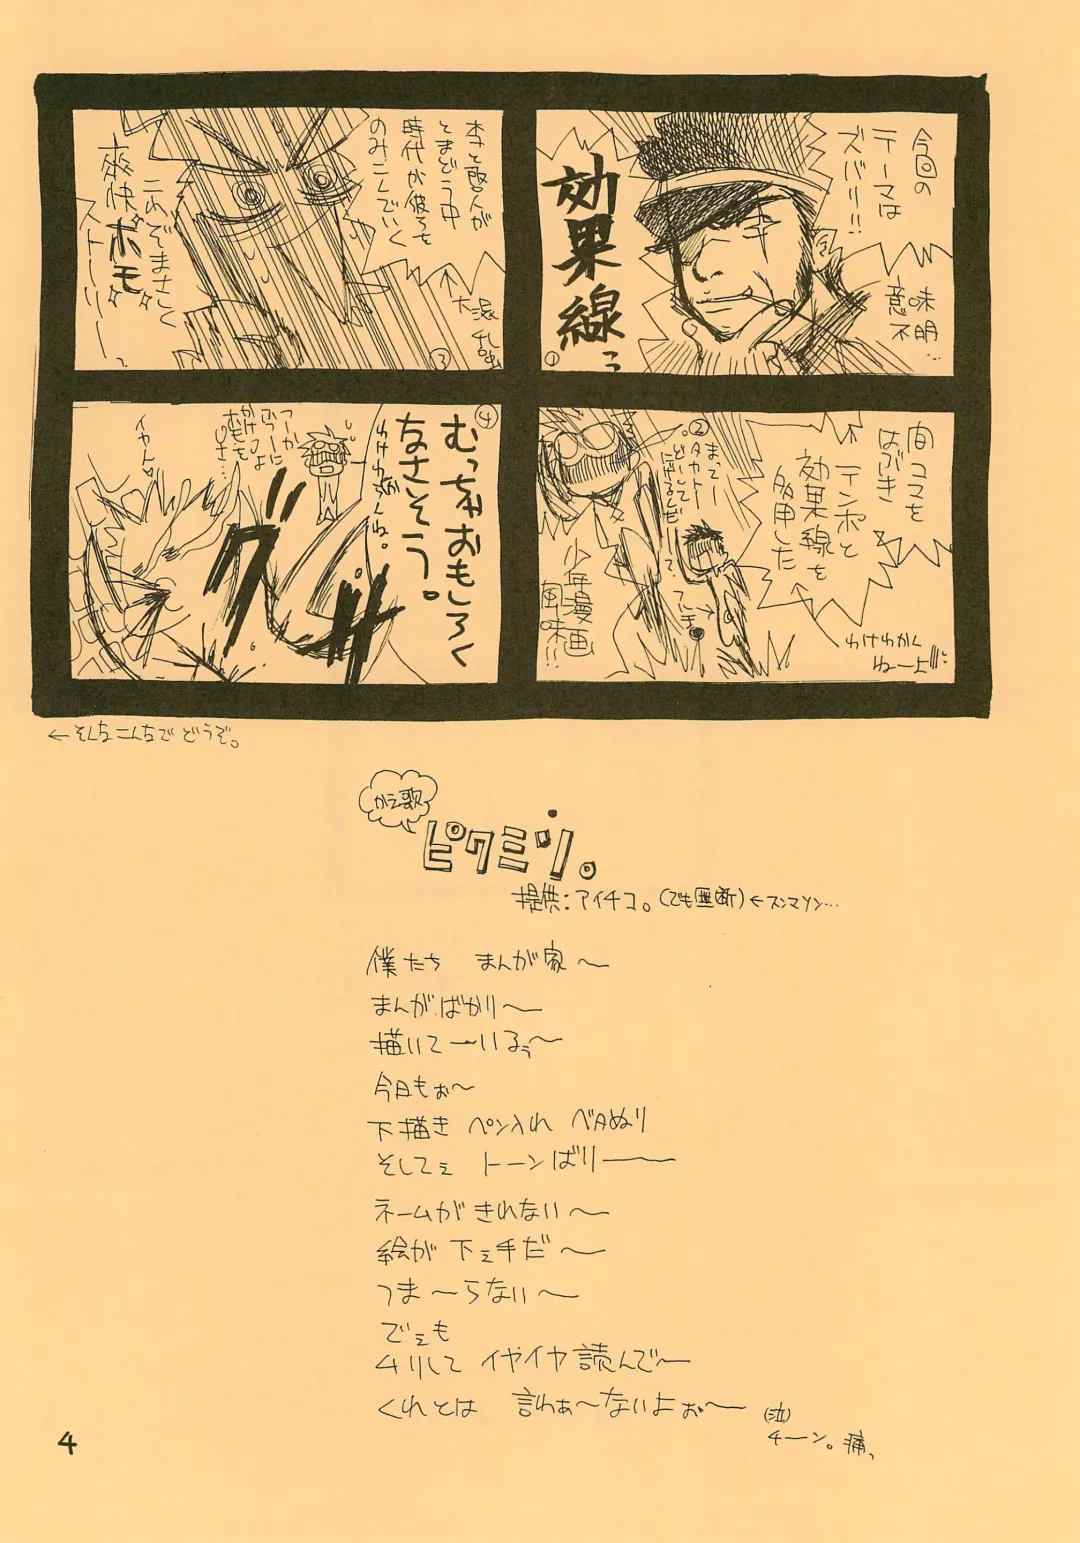 今回の
テーマは
ズバリ!!
効果線っ
意味
不明…
①
間コマを
はぶき
テンポと
効果線を
多用した
少年漫画
風味!!
②
まってー
タカトー
どーして
にげるんだーって
わけわかく
ねーよ!!!
時代が彼らを
のみこんでいく
とまどう中
←大混乱
③
これぞまさしく
爽快"ホモ"
ストーリーっ
④
むっちゃおもしろく
なさそう。
わけわかんね。
つーか
イヤん
←そんなこんなでどうぞ。
かえ歌
ピクミン。
提供:アイチコ。(でも無断)←スンマソン…
僕たち まんが家〜
まんがばかり〜
描いてーいるぅ〜
今日もぉ〜
下描き ペン入れ ベタぬり
そしてぇ トーンばりー
ネームが きれない〜
絵が 下ぇ手だ〜
つま〜らない〜
でぇも
ムリして イヤイヤ 読んで〜
くれとは 言わぁ〜ないよぉ〜
(泣)
チーン。痛っ
4